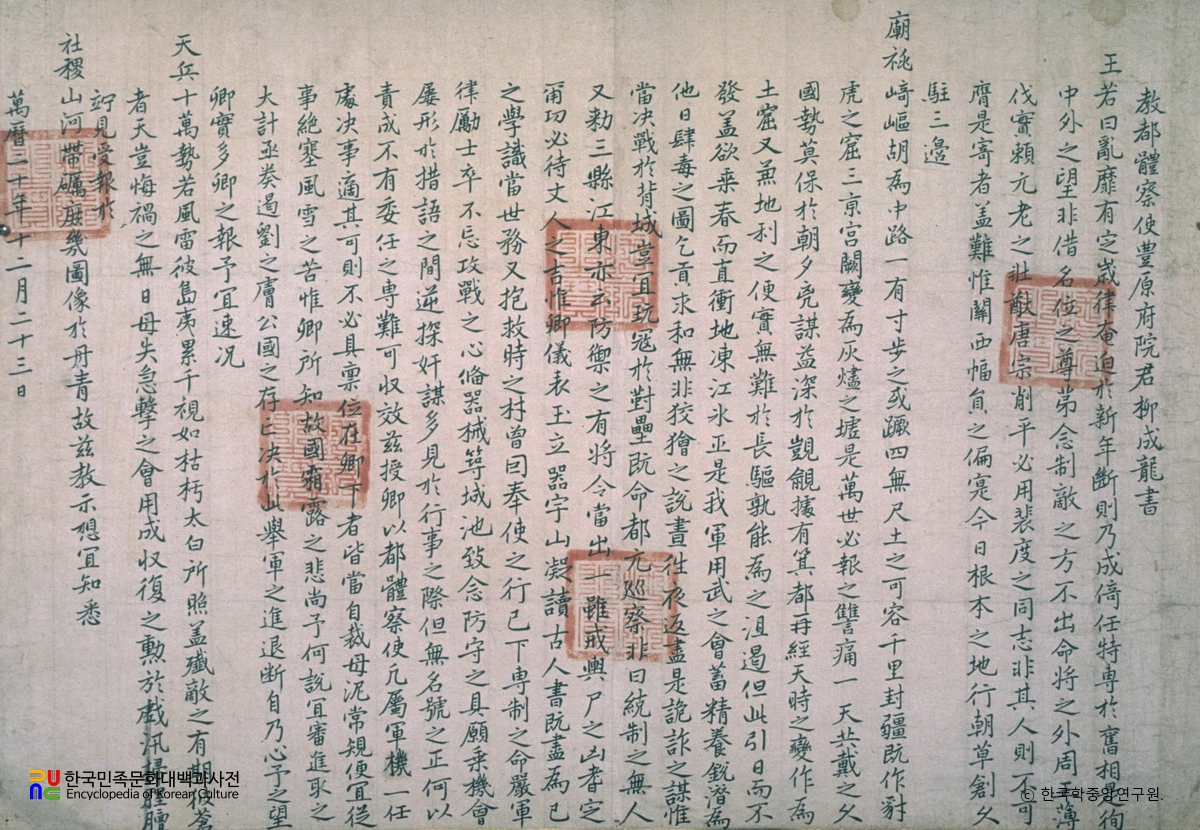 教都體察使豊原府院君柳成龍書
王若曰亂靡有定歲律奄迫於新年斷則乃成倚任特專於舊相是徇
中外之望非借名位之尊第念制敵之方不出命將之外周王薄
伐實賴元老之壯猷唐宗削平必用裴度之同志非其人則不可
膺是寄者盖難惟關西幅員之偏寔今日根本之地行朝草創久
駐三邊
廟祧崎嶇胡為中路一有寸步之或蹶四無尺土之可容千里封疆旣作豺
虎之窟三京宮闕變為灰燼之墟是萬世必報之讐痛一天共戴之久
國勢莫保於朝夕兇謀益深於覬覦據有箕都再經天時之變作為
土窟又兼地利之便實無難於長驅孰能為之沮遏但此引日而不
發盖欲乘春而直衝地凍江氷正是我軍用武之會蓄精養銳潛為
他日肆毒之圖乞貢求和無非狡獪之說晝往夜返盡是詭詐之謀惟
當决戰於背城豈宜玩寇於對壘旣命都元巡察非曰統制之無人
又勑三縣江東亦云防禦之有將令當出一雖戒輿尸之凶耆定
爾功必待丈人之吉惟卿儀表玉立器宇山凝讀古人書旣盡為己
之學識當世務又抱救時之材曾回奉使之行已下專制之命嚴軍
律勵士卒不忘攻戰之心脩器械等城池致念防守之具願乘機會
屢形於措語之間逆探奸謀多見於行事之際但無名號之正何以
責成不有委任之專難可收效玆授卿以都體察使凡屬軍機一任
處决事適其可則不必具稟位在卿下者皆當自裁毋泥常規便宜從
事絶塞風雪之苦惟卿所知故國霜露之悲尚予何說宜審進取之
大計亟奏遏劉之膚公國之存亡决於此擧軍之進退斷自乃心予之望
卿實多卿之報予宜速况
天兵十萬勢若風雷彼島夷累千視如枯朽太白所照盖殲敵之有期彼蒼
者天豈悔禍之無日毋失急擊之會用成收復之勲於戲汛掃腥膻
竚見受報於
社稷山河帶礪庶幾圖像於丹靑故玆教示想宜知悉
萬曆二十年十二月二十三日
한국민족문화대백과사전
Encyclopedia of Korean Culture
© 한국학중앙연구원.